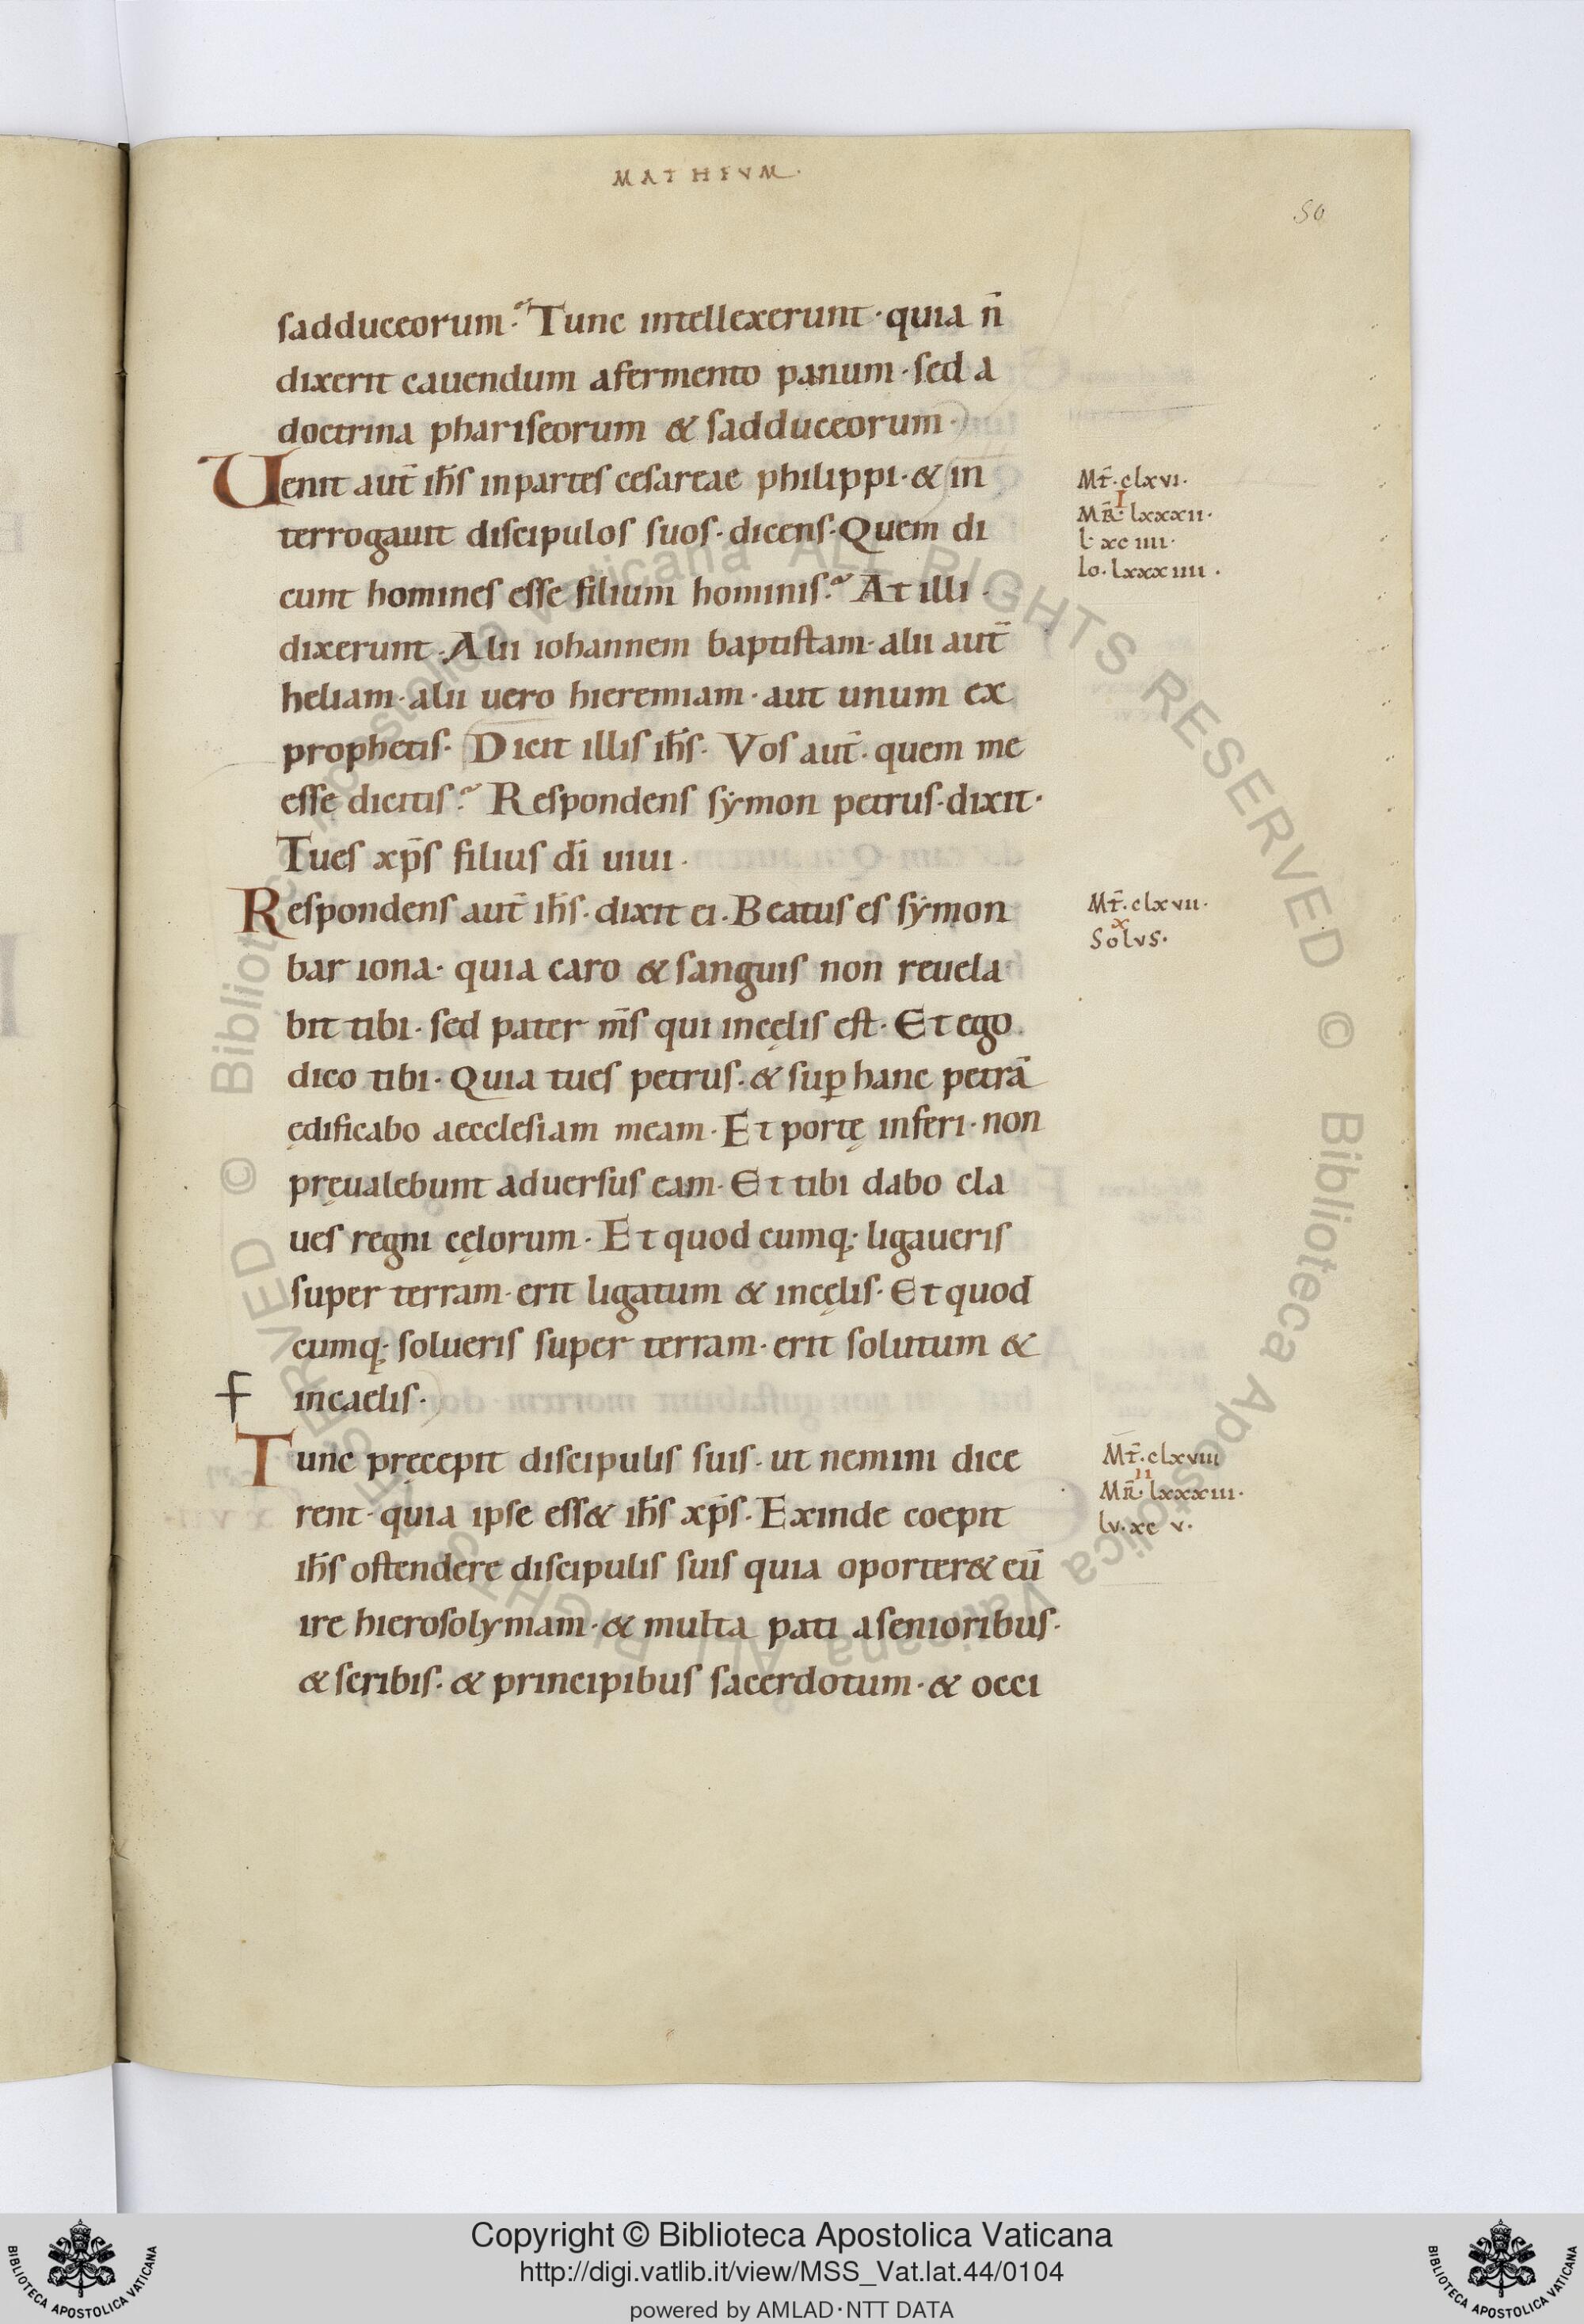 MATHEVM.
50
sadduceorum. Tunc intellexerunt· quia n̄
dixerit cauendum afermento panum· sed a
doctrina phariseorum & sadduceorum·
Uenit aut̄ ih̄s inpartes cesareae philippi· & in
terrogauit discipulos suos· dicens· Quem di
cunt homines esse filium hominis? At illi·
dixerunt· Alii iohannem baptistam· alii aut̄
heliam· alii uero hieremiam· aut unum ex
prophetis· Dicit illis ih̄s· Vos aut̄· quem me
esse dicitis? Respondens sẏmon petrus· dixit·
Tues xp̄s filius dī uiui·
Respondens aut̄ ih̄s· dixit ei· Beatus es sẏmon
bar iona· quia caro & sanguis non reuela
bit tibi· sed pater m̄s qui incęlis est· Et ego
dico tibi· Quia tues petrus· & suꝑ hanc petrā
ędificabo aecclesiam meam· Et portę inferi· non
pręualebunt aduersus eam· Et tibi dabo cla
ues regni cęlorum· Et quod cumq; ligaueris
super terram· erit ligatum & incęlis· Et quod
cumq; solueris super terram· erit solutum &
incaelis·
Tunc pręcepit discipulis suis· ut nemini dice
rent· quia ipse ess& ih̄s xp̄s· Exinde coepit
ih̄s ostendere discipulis suis quia oporter& eū
ire hierosolymam· & multa pati asenioribus·
& scribis· & principibus sacerdotum· & occi
Mt̄· clxvi·
I
MR̄· lxxxii·
l· xc iiii·
Io· lxxxiiii·
Mt̄· clxvii·
x
Solvs·
Mt̄· clxviii
II
MR̄· lxxxiii·
lv· xc v·
Copyright © Biblioteca Apostolica Vaticana
http://digi.vatlib.it/view/MSS_Vat.lat.44/0104
powered by AMLAD·NTT DATA
BIBLIOTECA APOSTOLICA VATICANA
BIBLIOTECA APOSTOLICA VATICANA
© Biblioteca Apostolica Vaticana ALL RIGHTS RESERVED
© Biblioteca Apostolica Vaticana ALL RIGHTS RESERVED